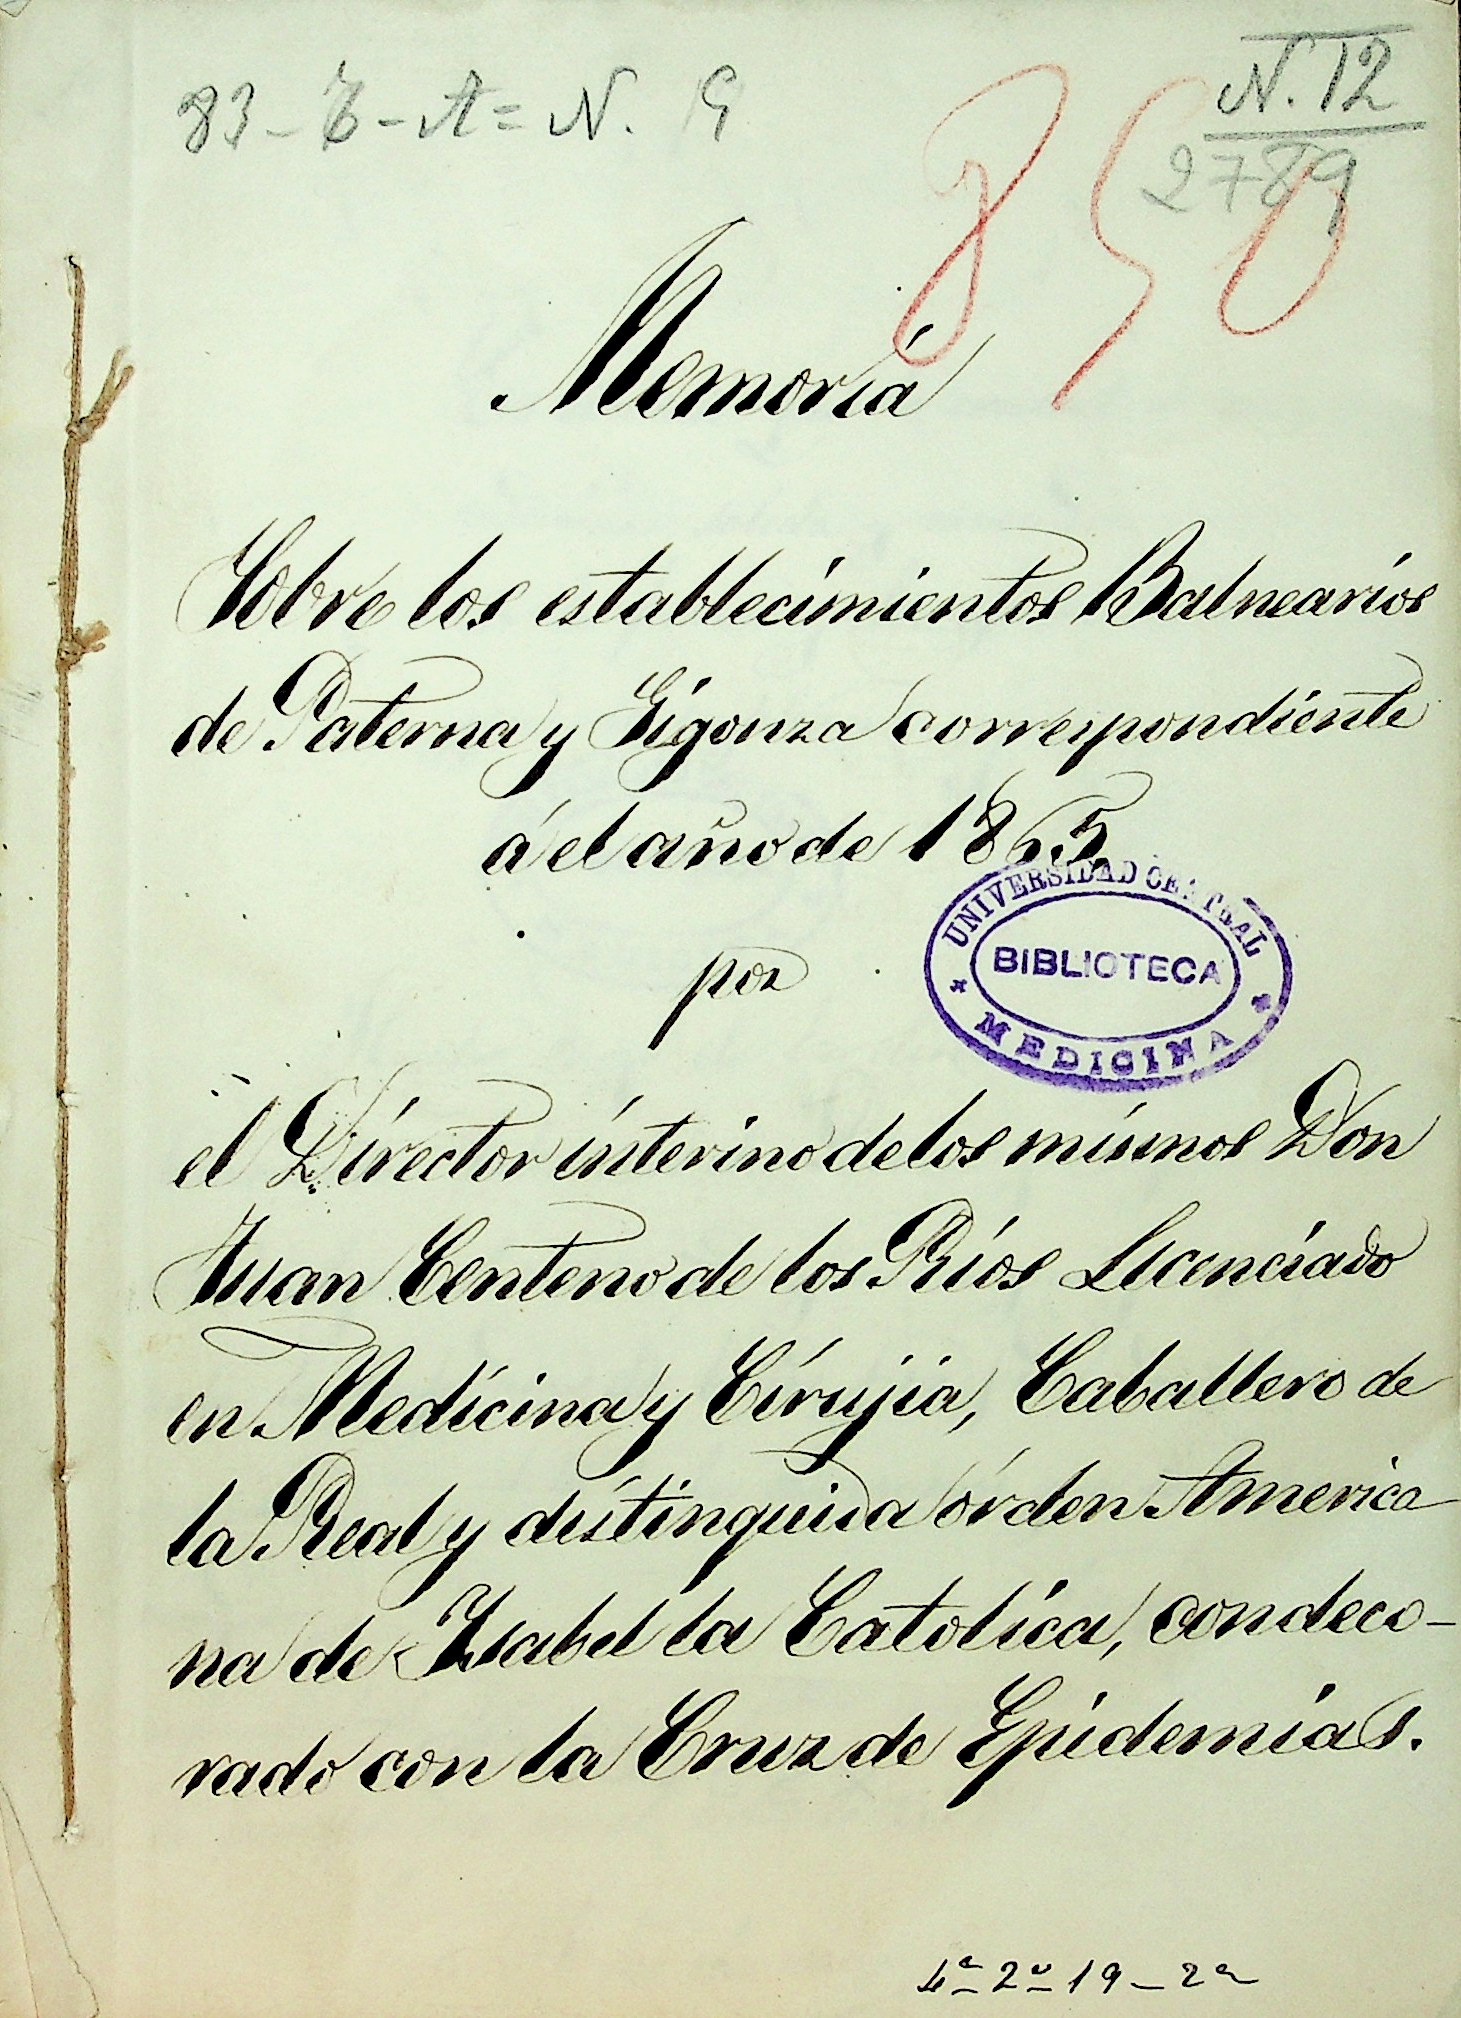 83-7-A=N. 9
N. 12
2789
850
Memoria
Sobre los establecimientos Balnearios
de Paterna y Gigonza correspondiente
á el año de 1865
UNIVERSIDAD CENTRAL
BIBLIOTECA
MEDICINA
por
el Director interino de los mismos Don
Juan Centeno de los Rios Licenciado
en Medicina y Cirujia, Caballero de
la Real y distinguida órden America
na de Isabel la Catolica, condeco-
rado con la Cruz de Epidemias.
4ª 2ª 19-2ª